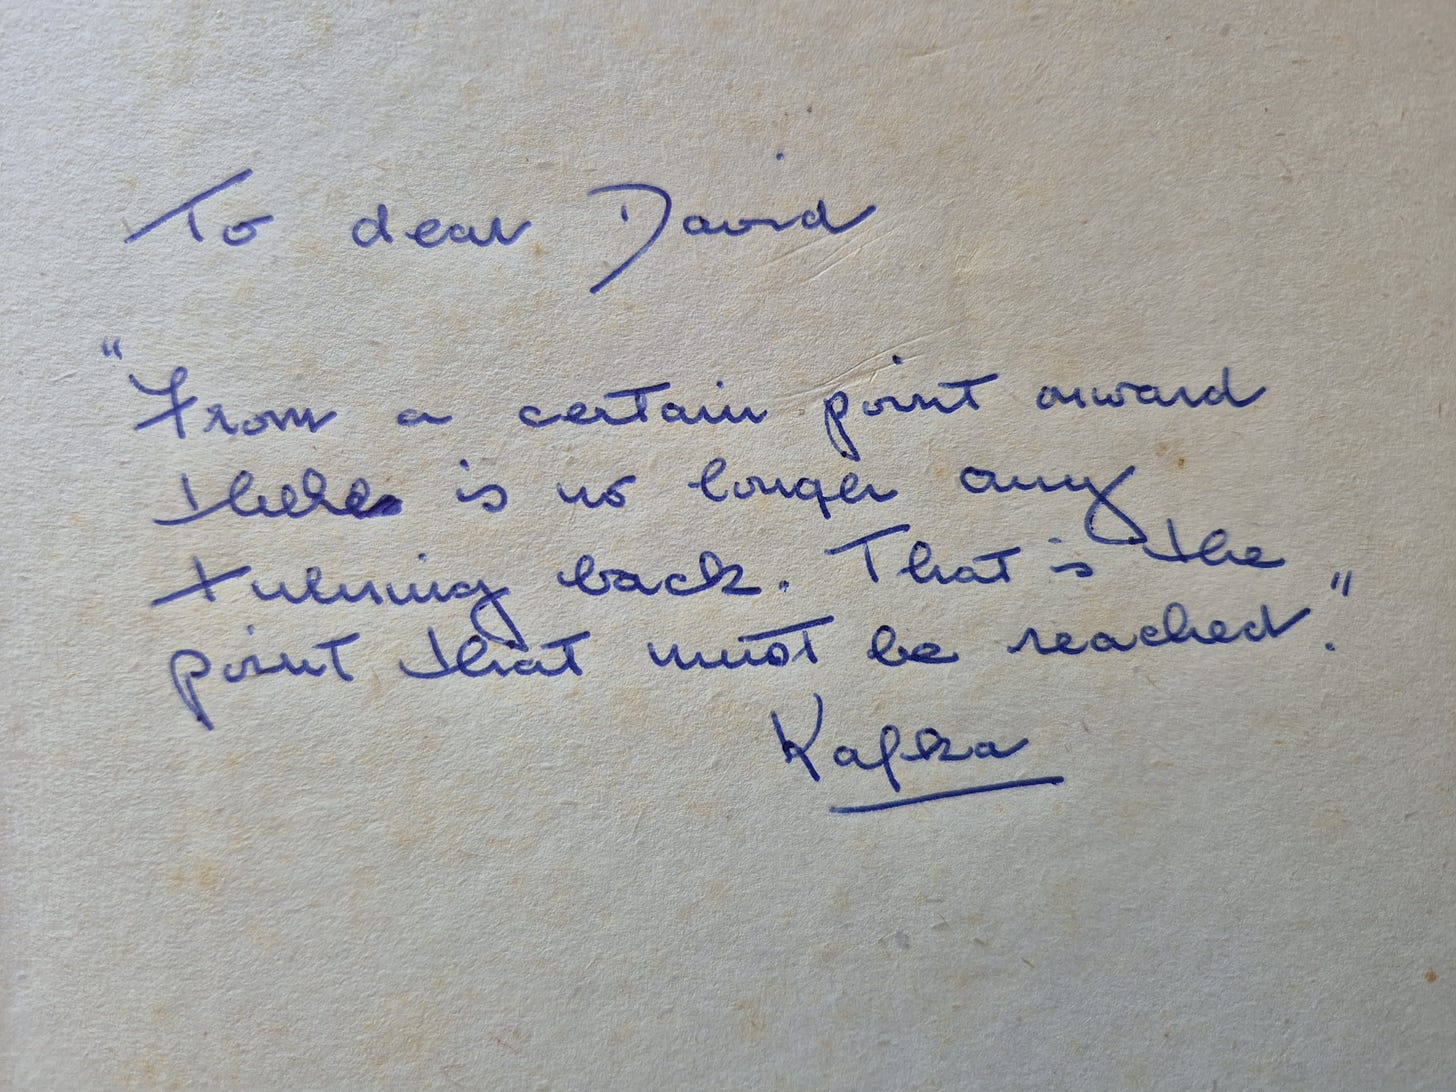 To dear David
"From a certain point onward
there is no longer any
turning back. That is the
point that must be reached."
Kafka